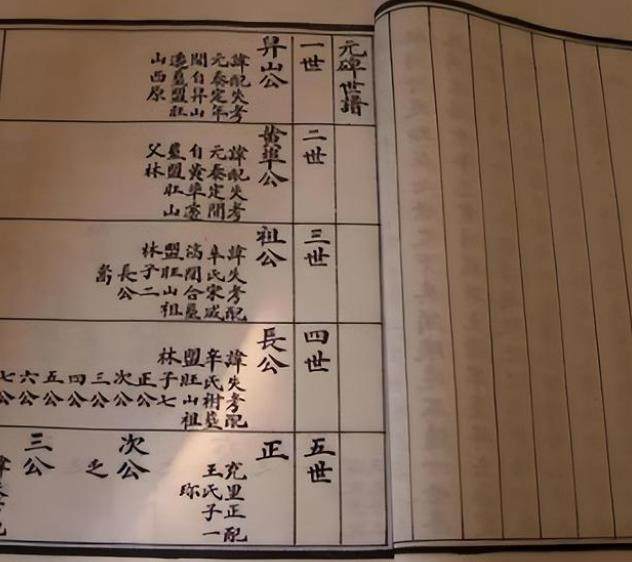 元碑世譜
一世
昇山公
諱配失考
元泰定年
間自昇山
遷墓盟旺
山西原
二世
埠公
諱配失考
元泰定間
自埠遷
墓盟旺山
父林
三世
祖公
諱失考配
牟氏宋咸
間合墓
盟旺山祖
林子二
長公
四世
長公
諱失考配
辛氏柎墓
盟旺山祖
林子七
正公
次公
三公
四公
五公
六公
七公
五世
正
充里正配
王氏子一
珎
次公
之
三公